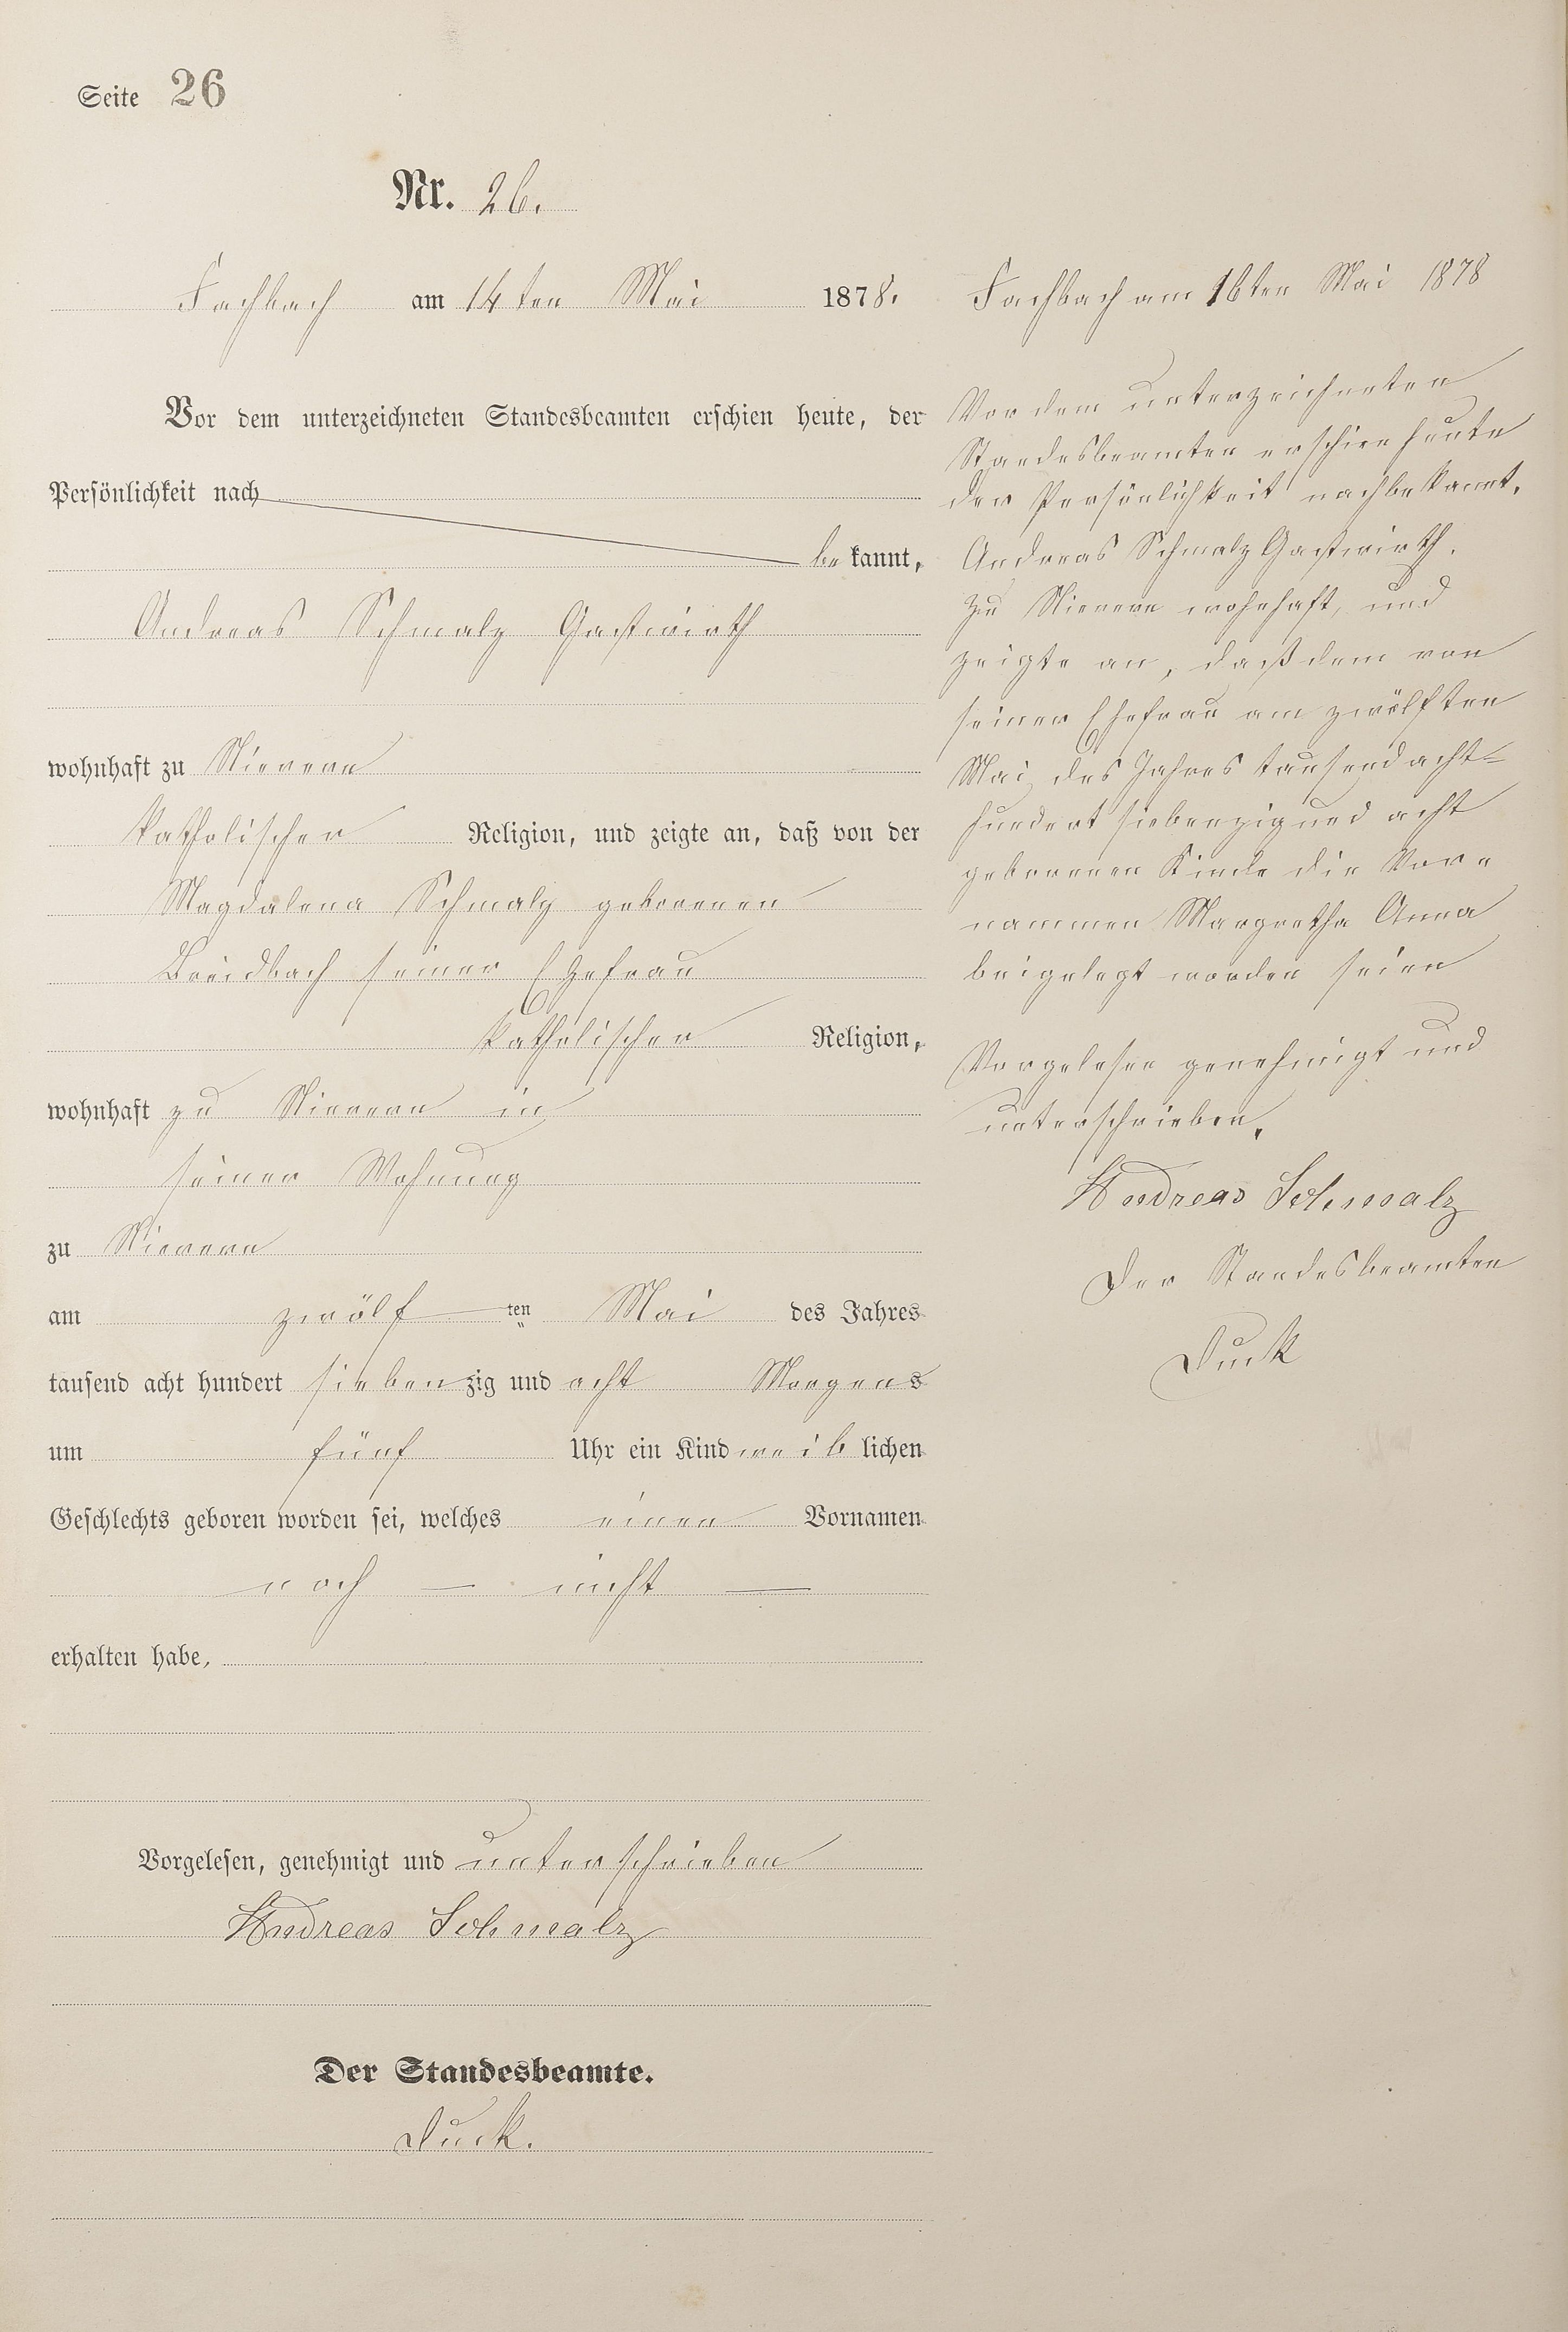 Seite 26
Nr. 26.
Fachbach am 14ten Mai 1878.
Vor dem unterzeichneten Standesbeamten erschien heute, der
Persönlichkeit nach
bekannt,
Andreas Schmalz Gastwirth
wohnhaft zu Nievern
katholischer Religion, und zeigte an, daß von der
Magdalena Schmalz geborenen
Breidbach seiner Ehefrau
katholischer Religion,
wohnhaft zu Nievern in
seiner Wohnung
zu Nievern
am zwölf ten Mai des Jahres
tausend acht hundert siebenzig und acht Morgens
um fünf Uhr ein Kind weiblichen
Geschlechts geboren worden sei, welches einen Vornamen
noch — nicht —
erhalten habe,
Vorgelesen, genehmigt und unterschrieben
Andreas Schmalz
Der Standesbeamte.
Duck.
Fachbach am 16ten Mai 1878
Vor dem unterzeichneten
Standesbeamten erschien heute
der Persönlichkeit nach bekannt,
Andreas Schmalz Gastwirth.
zu Nievern wohnhaft, und
zeigte an, daß dem von
seiner Ehefrau am zwölften
Mai des Jahres tausend acht-
hundert siebenzig und acht
geborenen Kinde die Vor-
nammen Margretha Anna
beigelegt worden seien
Vorgelesen genehmigt und
unterschrieben.
Andreas Schmalz
Der Standesbeamten
Duck